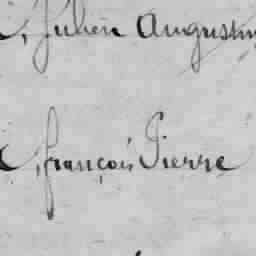 , Julien Augustin
, françois Pierre